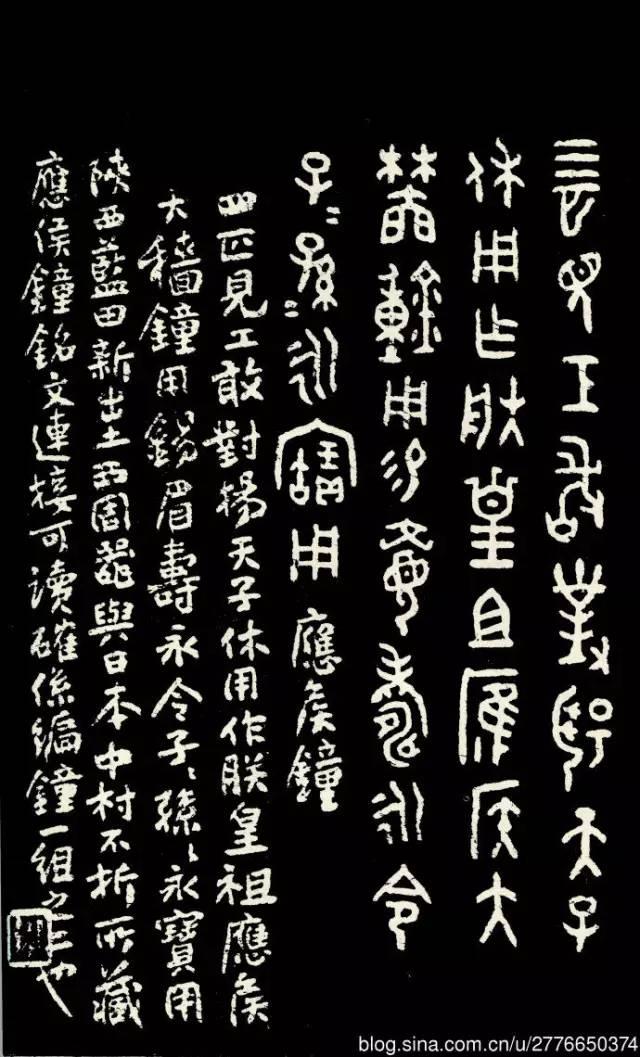 亖匹見工敢對揚天子
休用乍朕皇且應侯大
鐘用易眉壽永令
子〻孫〻永寶用 應侯鐘
四匹見工敢對揚天子休用作朕皇祖應侯
大穡鐘用錫眉壽永令子〻孫〻永寶用
陝西藍田新出土西周器與日本中村不折所藏
應侯鐘銘文連接可讀確係編鐘一組之二也
blog.sina.com.cn/u/2776650374